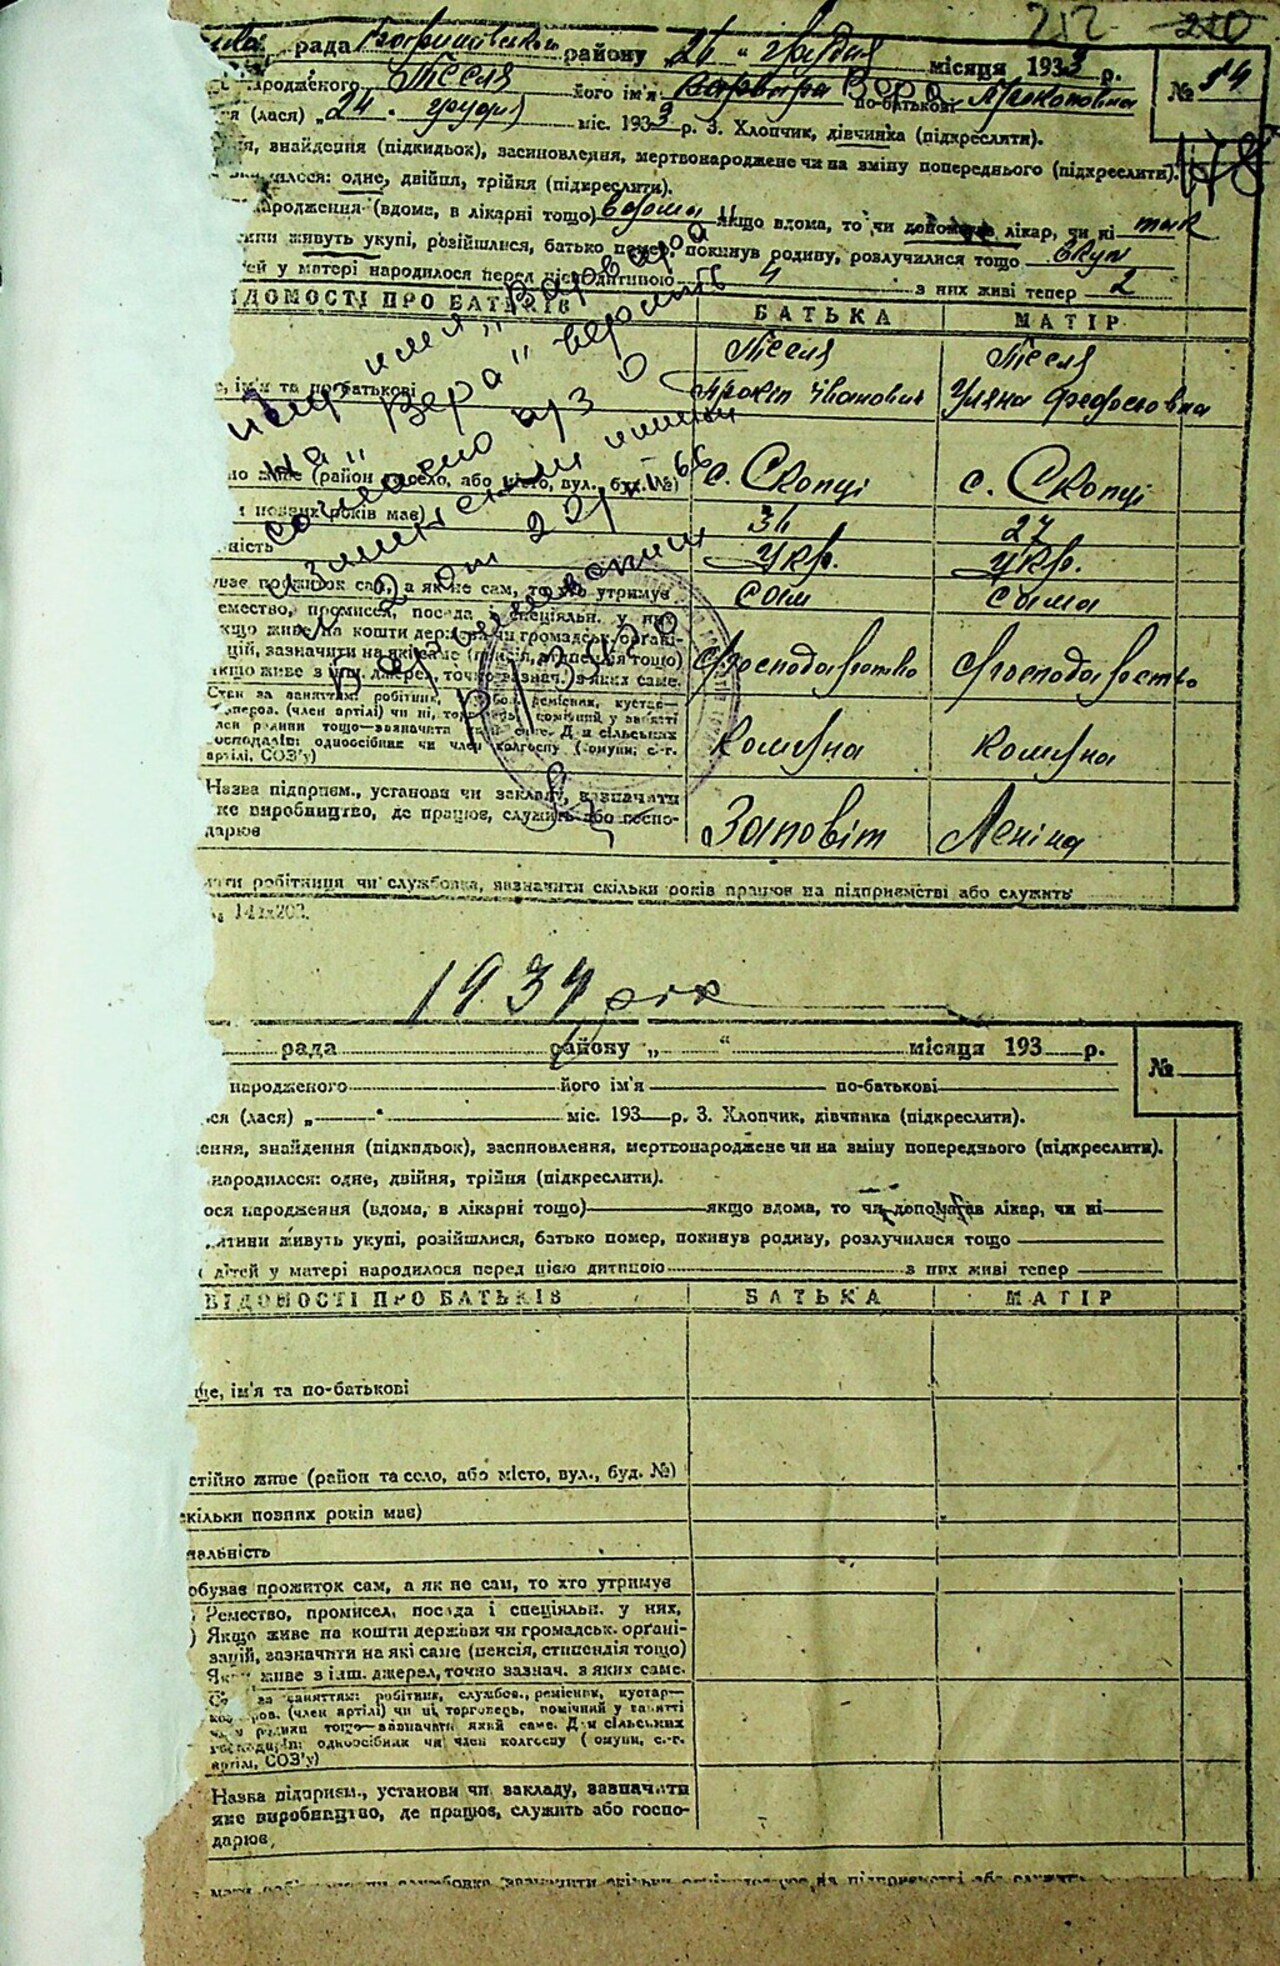 212 210
рада району „26“ грудня місяця 1933 р.
№ 14
178
народженого Тесля його ім'я Варвара Вера по-батькові Прокоповна
ся (лася) „24“ грудня міс. 1933 р. 3. Хлопчик, дівчинка (підкреслити).
знайдення (підкидьок), засиновлення, мертвонароджене чи на зміну попереднього (підкреслити).
народилося: одне, двійня, трійня (підкреслити).
народження (вдома, в лікарні тощо) вдома якщо вдома, то чи допомагав лікар, чи ні так
тини живуть укупі, розійшлися, батько помер, покинув родину, розлучилися тощо вкупі
тей у матері народилося перед цією дитиною 4 з них живі тепер 2
ВІДОМОСТІ ПРО БАТЬКІВ БАТЬКА МАТІР
ім'я та по-батькові Тесля Прокіп Іванович Тесля Уляна Федосовна
имя „Варвара“
на „Вера“
согласно
но живе (район та село, або місто, вул., буд. №) с. Скопці с. Скопці
повних років має) 36 27
ність Укр. Укр.
ває прожиток сам, а як не сам, то хто утримує сам сама
емество, промисел, посада і спеціяльн. у них,
кщо живе на кошти держави чи громадськ. органі-
цій, зазначити на які саме (пенсія, стипендія тощо)
якщо живе з інш. джерел, точно зазнач. з яких саме.
Господарство Господарство
Стан за заняттям: робітник, службов., ремісник, кустар—
коопров. (член артілі) чи ні, торговець, помічний у занятті
член родини тощо—зазначити який саме. Для сільських
господарів: одноосібник чи член колгоспу (комуни, с.-г.
артілі, СОЗ'у)
Комуна Комуна
Назва підприєм., установи чи закладу, зазначити
яке виробництво, де працює, служить або госпо-
дарює
Заповіт Леніна
мати робітниця чи службовка, зазначити скільки років працює на підприємстві або служить
1934 рік
рада району „ “ місяця 193 р.
№
народженого його ім'я по-батькові
ся (лася) „ “ міс. 193 р. 3. Хлопчик, дівчинка (підкреслити).
ення, знайдення (підкидьок), засиновлення, мертвонароджене чи на зміну попереднього (підкреслити).
народилося: одне, двійня, трійня (підкреслити).
ося народження (вдома, в лікарні тощо) якщо вдома, то чи допомагав лікар, чи ні
итини живуть укупі, розійшлися, батько помер, покинув родину, розлучилися тощо
дітей у матері народилося перед цією дитиною з них живі тепер
ВІДОМОСТІ ПРО БАТЬКІВ БАТЬКА МАТІР
ще, ім'я та по-батькові
стійно живе (район та село, або місто, вул., буд. №)
скільки повних років має)
нальність
обуває прожиток сам, а як не сам, то хто утримує
Ремество, промисел, посада і спеціяльн. у них,
) Якщо живе на кошти держави чи громадськ. органі-
зацій, зазначити на які саме (пенсія, стипендія тощо)
Якщо живе з інш. джерел, точно зазнач. з яких саме.
за заняттям: робітник, службов., ремісник, кустар—
коопров. (член артілі) чи ні, торговець, помічний у занятті
член родини тощо—зазначити який саме. Для сільських
господарів: одноосібник чи член колгоспу (комуни, с.-г.
артілі, СОЗ'у)
Назва підприєм., установи чи закладу, зазначити
яке виробництво, де працює, служить або госпо-
дарює,